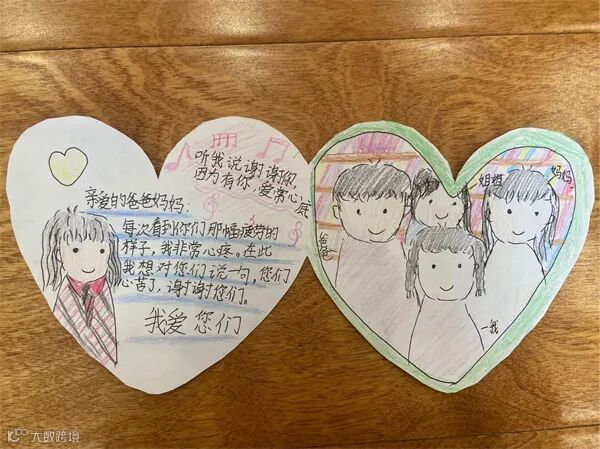 听我说谢谢你,
因为有你,爱常心底
亲爱的爸爸妈妈:
每次看到你们那幅疲劳的
样子,我非常心疼。在此
我想对您们说一句,您们
辛苦了,谢谢您们。
我爱您们
爸爸
姐姐
妈妈
我
大数跨境